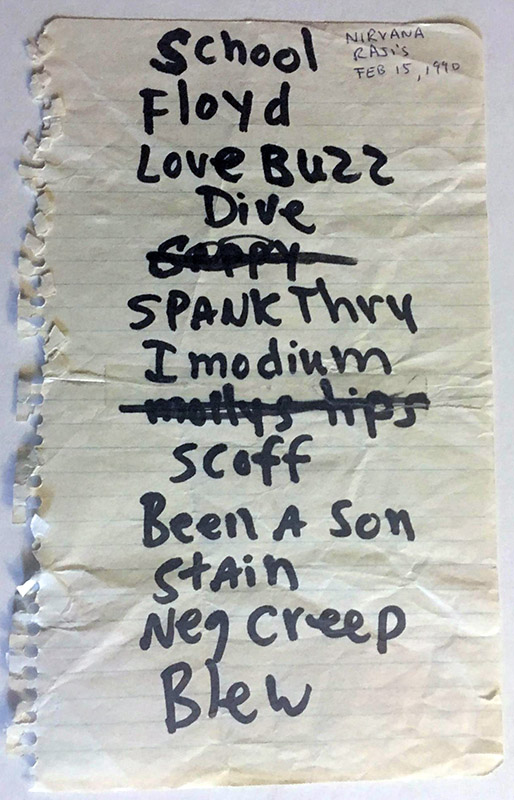 School
NIRVANA
RAJI'S
FEB 15, 1990
Floyd
Love Buzz
Dive
Sappy
SPANK Thru
Imodium
mollys lips
Scoff
Been A Son
Stain
Neg Creep
Blew